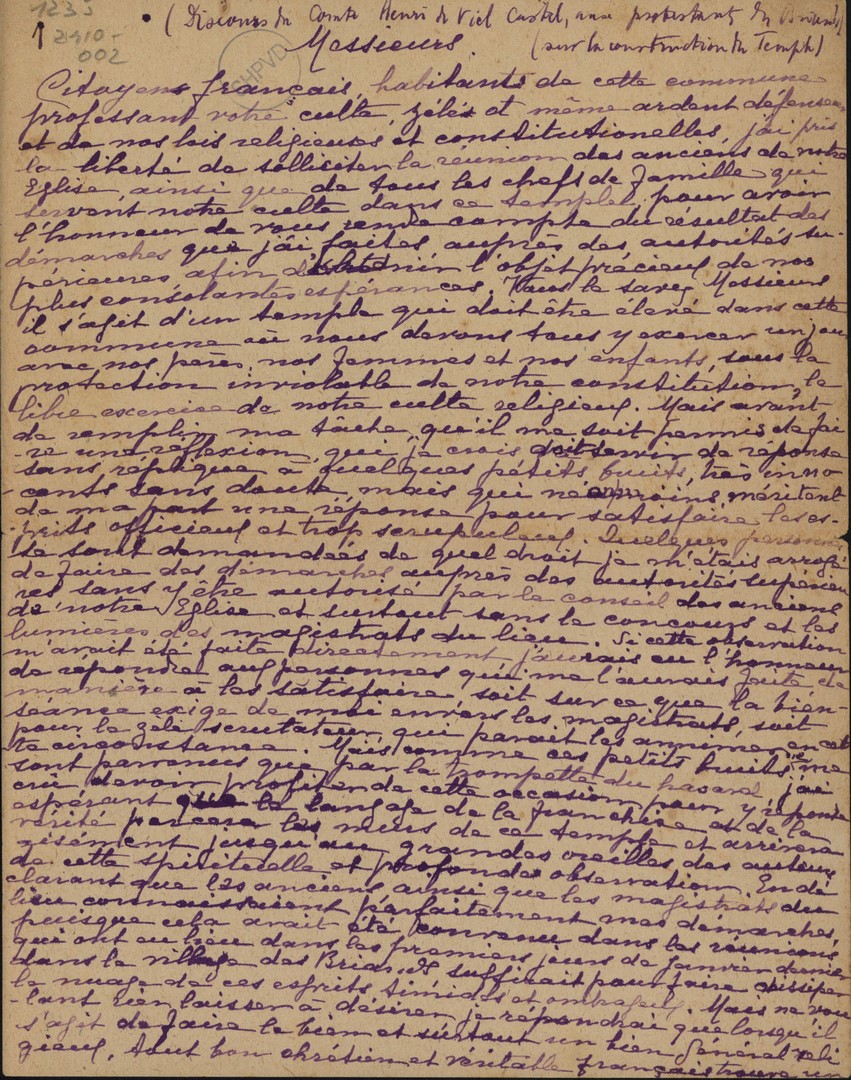 1235
2410-
002
CHPVD
(Discours du Comte Henri de Viel Castel, aux protestants des Briands)
(sur la construction du Temple)
Messieurs.
Citoyens français, habitants de cette commune
professant votre culte, zélés et même ardent défenseur
et de nos lois religieuses et constitutionelles, j'ai pris
la liberté de solliciter la réunion des anciens de notre
Eglise, ainsi que de tous les chefs de famille qui
servent notre culte dans ce temple, pour avoir
l'honneur de vous rendre compte du résultat des
démarches que j'ai faites auprès des autorités su-
périeures afin d'obtenir l'objet précieux de nos
plus consolantes espérances. Vous le savez Messieurs
il s'agit d'un temple qui doit être élevé dans cette
commune où nous devons tous y exercer un jour
avec nos pères, nos femmes et nos enfants, sous la
protection inviolable de notre constitution, le
libre exercice de notre culte religieux. Mais avant
de remplir ma tâche, qu'il me soit permis de fai
-re une réflexion, qui je crois doit servir de réponse
sans réplique à quelques petits bruits, très inno
-cents sans doute, mais qui néanmoins méritent
de ma part une réponse pour satisfaire les es-
-prits officieux et trop scrupuleux. Quelques personnes
se sont demandées de quel droit je m'étais arrogé
de faire des démarches auprès des autorités supérieu
res sans y être autorisé par le conseil des anciens
de notre Eglise et surtout sans le concours et les
lumières des magistrats du lieu. Si cette observation
m'avait été faite directement j'aurais eu l'honneur
de répondre aux personnes qui me l'aurais faite de
manière à les satisfaire, soit sur ce que la bien-
séance exige de moi envers les magistrats, soit
pour le zèle scrutateur qui parait les annimer en cet
te circonstance. Mais comme ces petits bruits ne me
sont parvenus que par la trompette du hasard, j'ai
crû devoir profiter de cette occasion pour y répondre
espérant que le langage de la franchise et de la
vérité percera les murs de ce temple et arrivera
aisément jusqu'aux grandes oreilles des auteurs
de cette spirituelle et profonde observation. En dé
clarant que les anciens ainsi que les magistrats du
lieu connaissaient parfaitement mes démarches,
puisque cela avait été convenu dans les réunions
qui ont eu lieu dans les premiers jours de Janvier dernier
dans le village des Briands suffirait pour faire dissiper
le nuage de ces esprits timides et ombrageux. Mais ne vou
-lant rien laisser à désirer je répondrai que lorsqu'il
s'agit de faire le bien et surtout un bien général reli
gieux, tout bon chrétien et véritable français trouve un